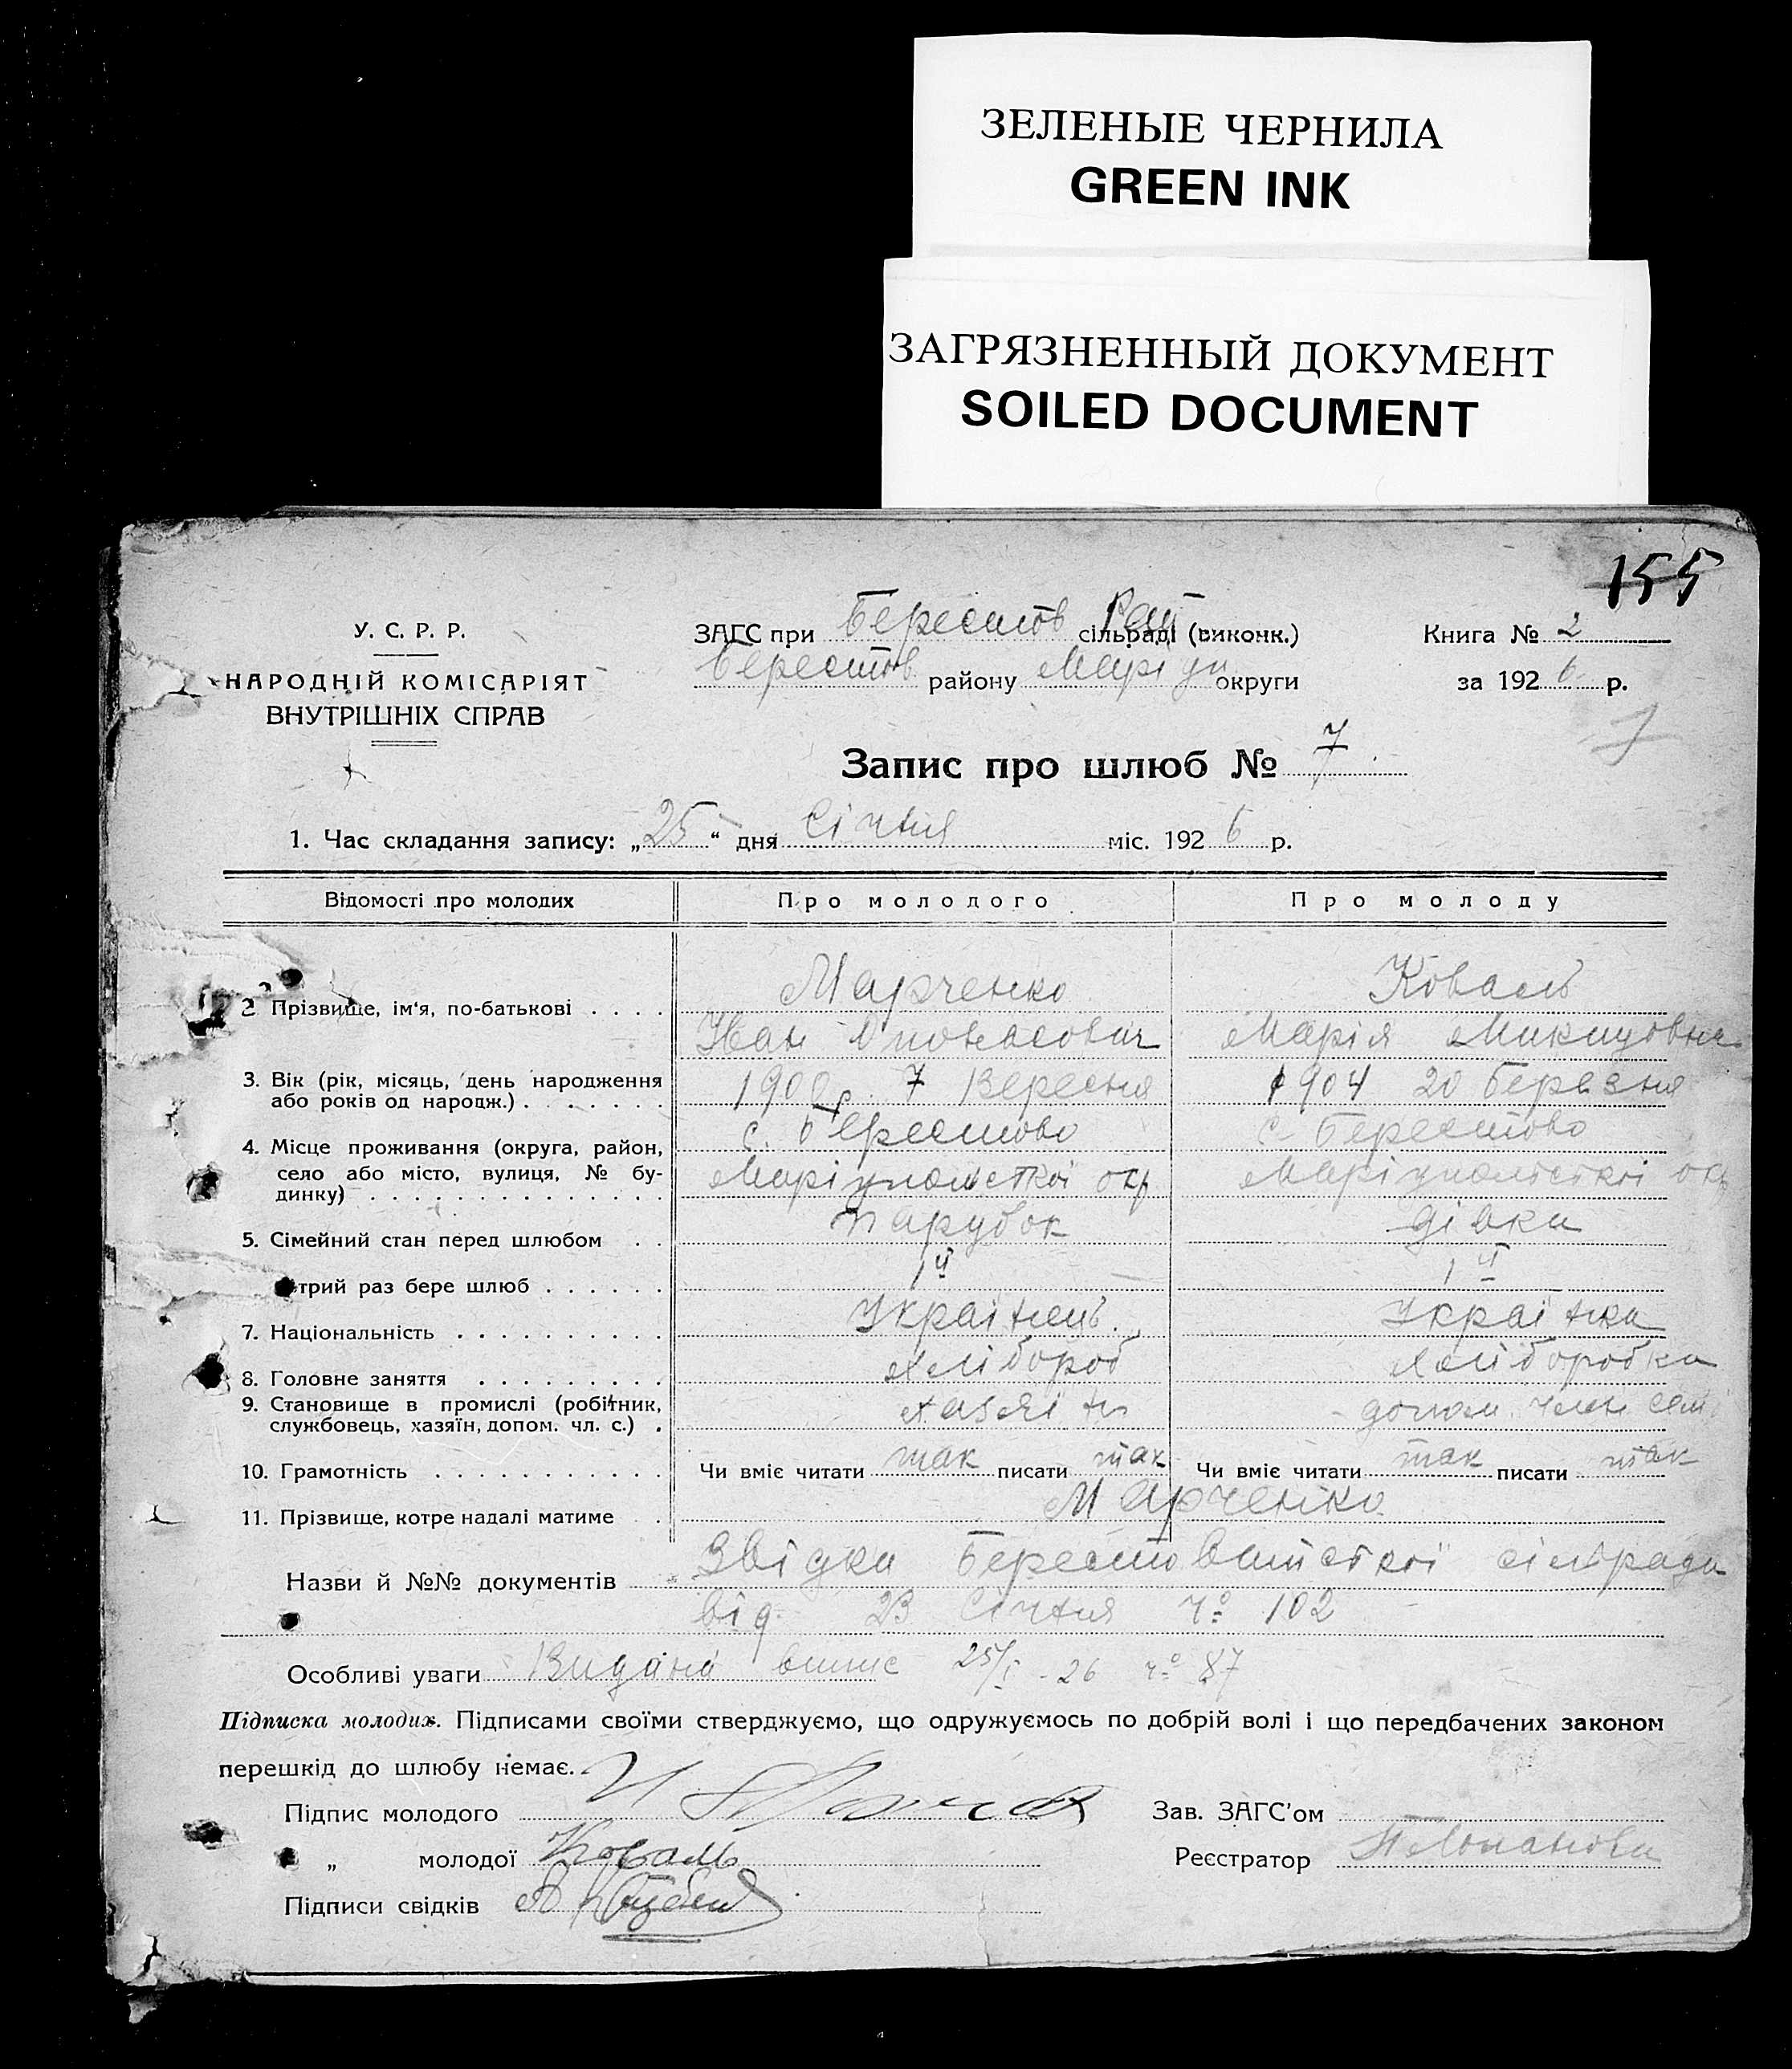 ЗЕЛЕНЫЕ ЧЕРНИЛА
GREEN INK
ЗАГРЯЗНЕННЫЙ ДОКУМЕНТ
SOILED DOCUMENT
155
У. С. Р. Р.
НАРОДНІЙ КОМІСАРІЯТ
ВНУТРІШНІХ СПРАВ
ЗАГС при Берестов сільраді (виконк.)
Берестов району Маріуп округи
Книга № 2
за 1926 р.
7
Запис про шлюб № 7
1. Час складання запису: „25“ дня Січня міс. 1926 р.
Відомості про молодих Про молодого Про молоду
2 Прізвище, ім'я, по-батькові . . . . Марченко Коваль
Іван Опонасович Марія Микитовна
3. Вік (рік, місяць, день народження або років од народж.) . . . . . . . 1900р. 7 Вересня 1904 20 березня
4. Місце проживання (округа, район, село або місто, вулиця, № будинку) . . . . . . . . . . . . . . с. Берестово с. Берестово
Маріупольсткої окр Маріупольсткої окр
5. Сімейний стан перед шлюбом . . парубок дівка
трий раз бере шлюб . . . . . . 1й 1й
7. Національність . . . . . . . . . . Українець. Українка
8. Головне заняття . . . . . . . . . Хлібороб Хліборобка
9. Становище в промислі (робітник, службовець, хазяїн, допом. чл. с.) . хазяїн допом. член семї
10. Грамотність . . . . . . . . . . . Чи вміє читати так писати так Чи вміє читати так писати так
11. Прізвище, котре надалі матиме . . Марченко
Назви й №№ документів Звідки сільради
від 23 Січня № 102
Особливі уваги Видана випис 25/I - 26 № 87
Підписка молодих. Підписами своїми стверджуємо, що одружуємось по добрій волі і що передбачених законом
перешкід до шлюбу немає.
Підпис молодого Зав. ЗАГС'ом
„ молодої Коваль Реєстратор
Підписи свідків